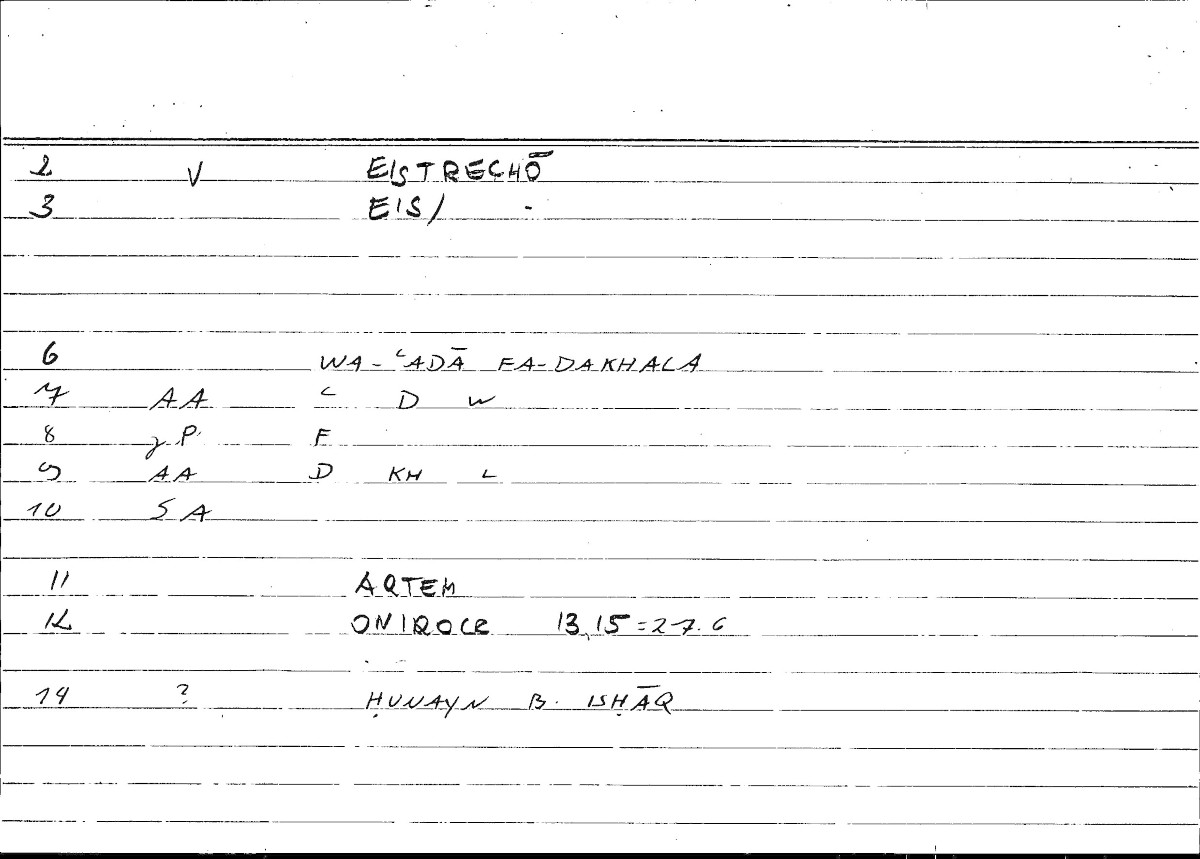 2 V EISTRECHŌ
3 EIS/ -
6 WA-ʿADĀ FA-DAKHALA
7 AA ʿ D W
8 P. F
9 AA D KH L
10 SA
11 ARTEM
12 ONIROCR 13,15=27.6
14 ? ḤUNAYN B. ISḤĀQ